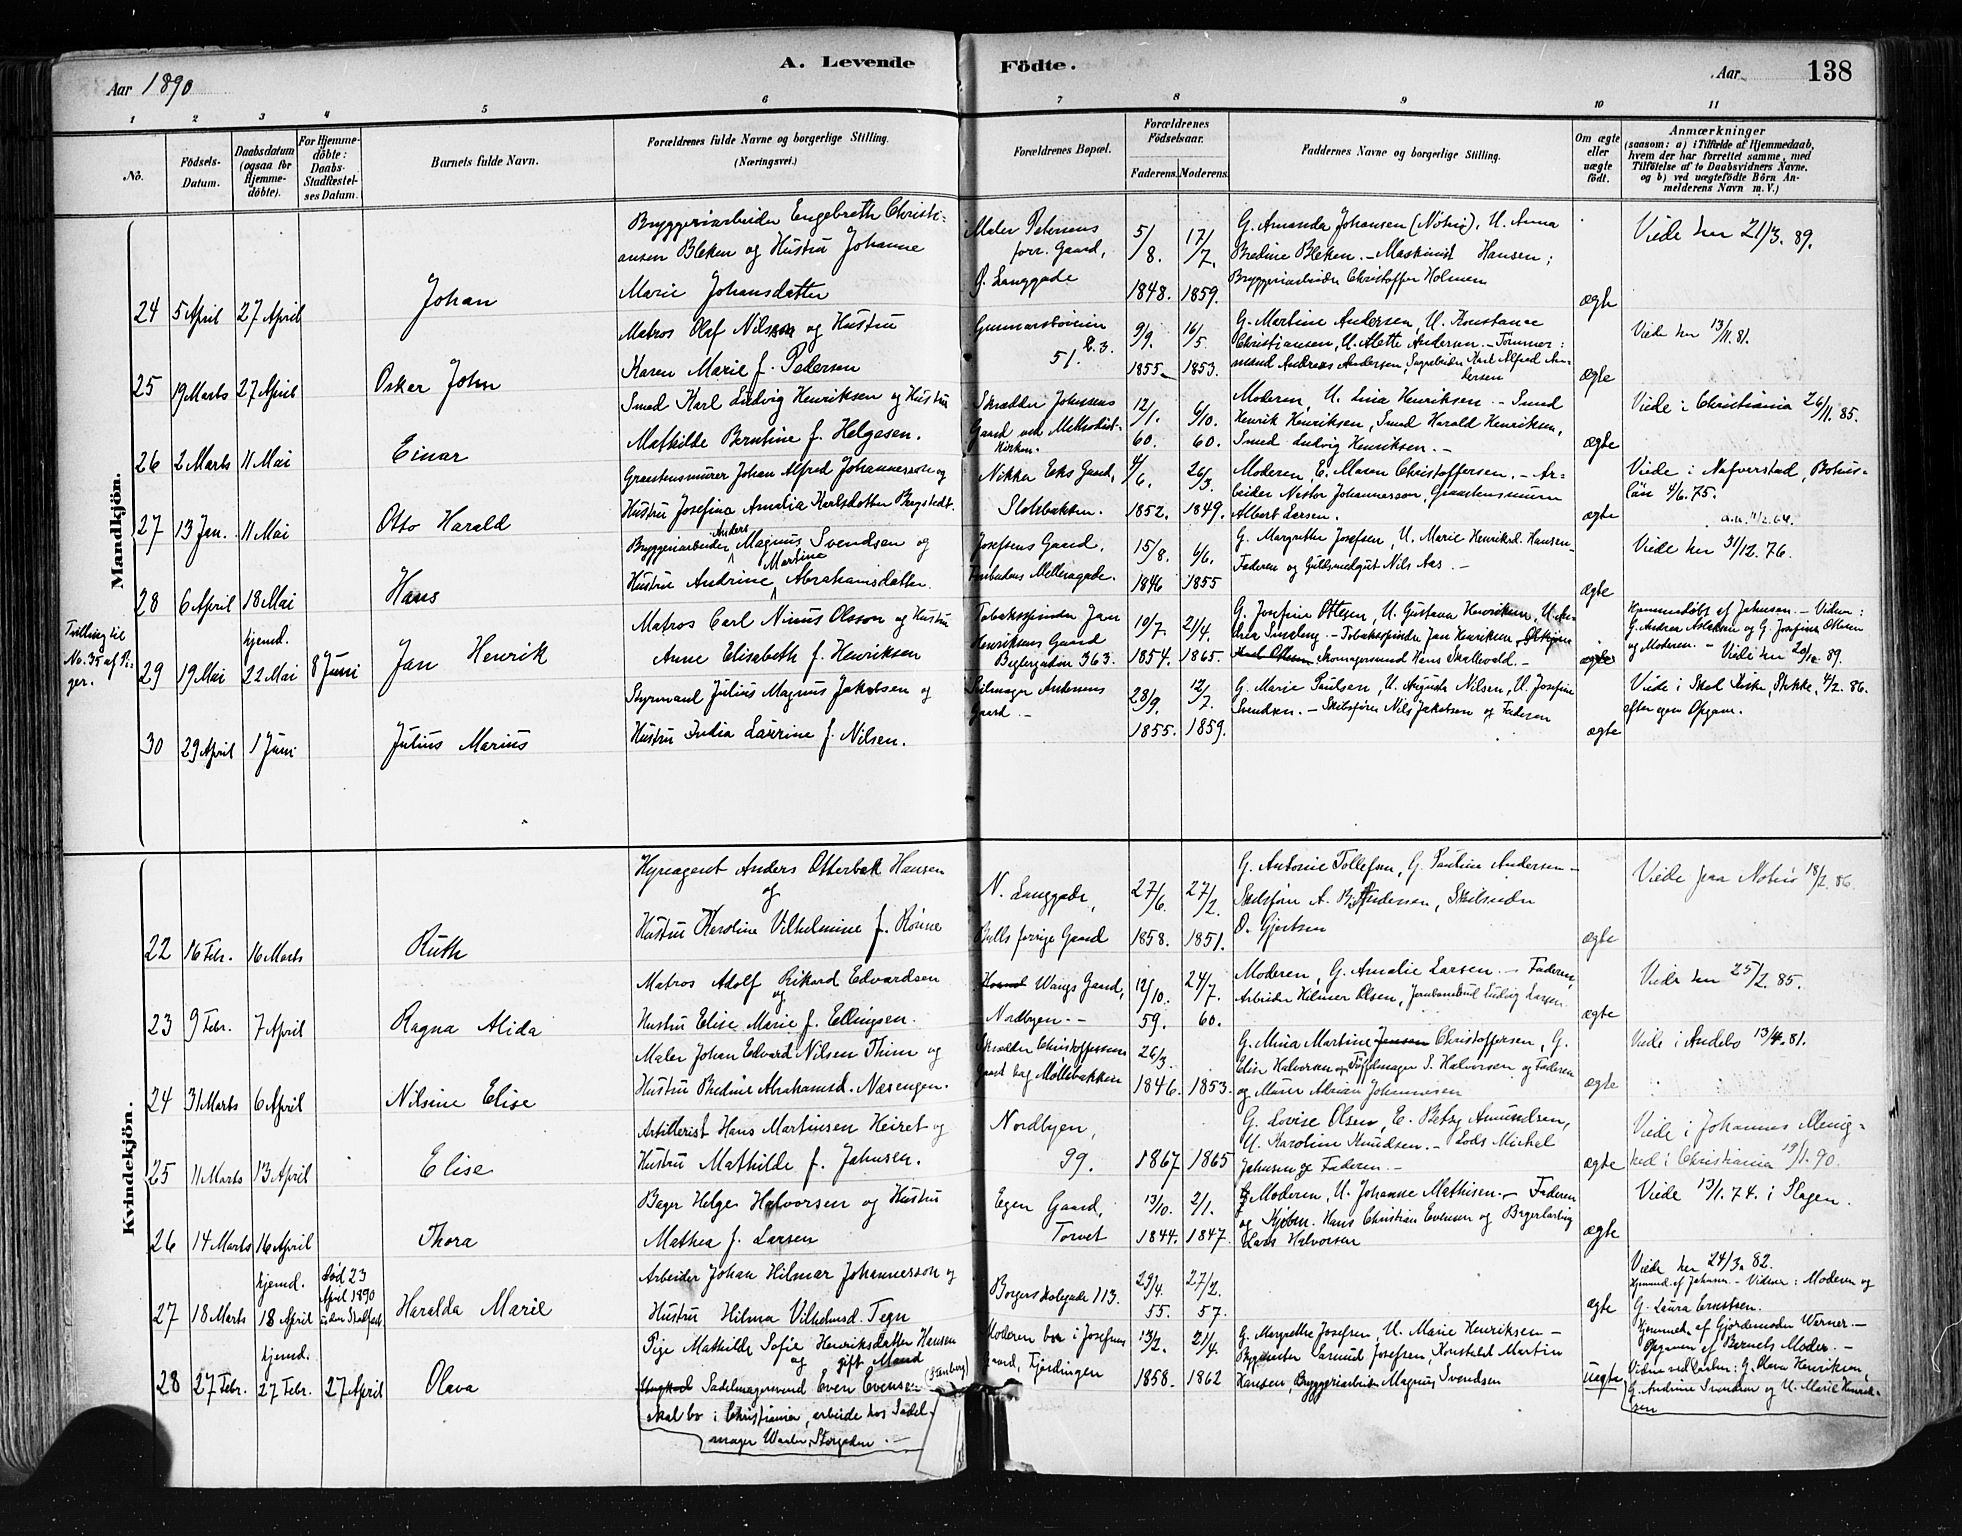 Aar 1890
A. Levende
Födte.
Aar
138
1 2 3 4 5 6 7 8 9 10 11
No.
Födsels-Datum.
Daabsdatum (ogsaa for Hjemme-döbte).
For Hjemme-döbte: Daabs-Stadfæstel-ses Datum.
Barnets fulde Navn.
Forældrenes fulde Navne og borgerlige Stilling. (Næringsvei.)
Forældrenes Bopæl.
Forældrenes Födselsaar.
Faderens. Moderens.
Faddernes Navne og borgerlige Stilling.
Om ægte eller uægte födt.
Anmærkninger
(saasom: a) i Tilfælde af Hjemmedaab,
hvem der har forrettet samme, med
Tilföielse af to Daabsvidners Navne,
og b) ved uægtefödte Börn An-
melderens Navn m. V.)
Mandkjön.
24 5 April 27 April
Johan
Bryggeriarbeider Engebreth Christi-
ansen Bleken og Hustru Johanne
Marie Johansdatter
Maler Petersens
forr. Gaard,
Ø. Langgade
5/8. 1848.
17/7. 1859.
G. Amanda Johansen (Nötrö), U. Anna
Bredine Bleken. - Maskinist Hansen;
Bryggeriarbeider Christoffer Holmen
ægte
Viede her 21/3. 89.
25 19 Marts 27 April
Oskar John
Matros Olaf Nilsson og Hustru
Karen Marie f. Pedersen
51.
9/9. 1855
16/5 1853.
G. Martine Andersen, U. Konstance
Christiansen, U. Alette Andersen. - Tömmer:
mand Andreas Andersen Sagarbeider Karl Alfred An-
dersen
ægte
Viede her 13/11. 81.
26 2 Marts 11 Mai
Einar
Smed Karl Ludvig Henriksen og Hustru
Mathilde Berntine f. Helgesen.
Skrædder Johnsens
Gaard ved Methodist-
kirken.
12/1. 60.
6/10. 60.
Moderen, U. Lina Henriksen. - Smed
Henrik Henriksen, Smed Harald Henriksen,
Smed Ludvig Henriksen. -
ægte
Viede i Christiania 26/11. 85.
27 13 Jan. 11 Mai
Otto Harald
Graastensmurer Johan Alfred Johannesson og
Hustru Josefina Amalia Karlsdotter Bergstedt.
Nikka Eks Gaard,
Slotsbakken.
4/6. 1852.
26/3. 1849.
Moderen, E. Maren Christoffersen, - Ar-
beider Nestor Johannesson, Graastensmurer
Albert Larsen.
ægte
Viede i Nafverstad, Bohus-
län 4/6. 75.
28 6 April 18 Mai
Hans
Anders
Bryggeriarbeider Magnus Svendsen og
Martine
Hustru Andrine Abrahamsdatter.
Josefsens Gaard,
Mellemgade.
15/8. 1846
6/6. 1855
G. Margrethe Josefsen, U. Marie Henriksd. Hansen-
Faderen og Guldsmedgut Nils Aas. -
ægte
Viede her 31/12. 76.
Tvilling til
No. 35 af Pi-
ger.
29 19 Mai
hjemd.
22 Mai 8 Juni
Jan Henrik
Matros Carl Ninus Olsson og Hustru
Anne Elisabeth f. Henriksen
Tobakspinder Jan
Henriksens Gaard
363.
19/7. 1854.
21/4. 1865.
G. Josefine Ottesen, U. Gustava Henriksen,
Tobakspinder Jan Henriksen,
Skomagersvend Hans Skallevold. -
ægte
Hjemmedöbt af Johnsen. - Vidner:
G. Andrea Aslaksen og G. Josefine Ottesen
og Moderen. - Viede her 20/10 89.
30 29 April 1 Juni
Julius Marius
Styrmand Julius Magnus Jakobsen og
Hustru India Laurine f. Nilsen.
Seilmager Andersens
Gaard -
28/9. 1855.
12/7. 1859.
G. Marie Paulsen, U. Augusta Nilsen, U. Josefine
Svendsen. - Skibsförer Nils Jakobsen og Faderen
ægte
Viede i Skal Kirke, Stokke, 4/2. 86.
efter egen Opgave.
Kvindekjön.
22 16 Febr. 16 Marts
Ruth
Hyreagent Anders Otterbek Hansen
og
Hustru Karoline Vilhelmine f. Rönne
N. Langgade,
Bulls forrige Gaard
27/6. 1858.
27/2. 1851.
G. Antonie Tollefsen, G. Pauline Andersen -
Skibsförer A. B. Andersen, Skibsreder
O. Gjertsen
ægte
Viede paa Nöterö 18/2. 86.
23 9 Febr. 7 April
Ragna Alida
Matros Adolf Rikard Edvardsen
og
Hustru Elise Marie f. Ellingsen.
Wangs Gaard,
Nordbyen. -
12/10. 59.
24/7. 60.
Moderen, G. Amalie Larsen. - Faderen,
Arbeider Hilmer Olsen, Ludvig Larsen
ægte
Viede her 25/2. 85.
24 31 Marts 6 April
Nilsine Elise
Maler Johan Edvard Nilsen Thim og
Hustru Bredine Abrahamsd. Næsengen.
Skrædder Christoffersens
Gaard bag Möllebakken
26/3. 1846.
1853.
G. Mina Martine Jensen Christoffersen, G.
Elise Halvorsen og S. Halvorsen og Faderen
og Murer Adrian Johannesen
ægte
Viede i Andebo 13/4. 81.
25 11 Marts 13 April
Elise
Artillerist Hans Martinsen Heiret og
Hustru Mathilde f. Jahnsen.
Nordbyen,
99.
1867
1865
G. Lovise Olsen, E. Betsy Amundsen,
U. Karoline Knudsen. - Lods Michel
Jahnsen og Faderen. -
ægte
Viede i Johannes Menig-
hed i Christiania 19/1. 90.
26 14 Marts 16 April
Thora
Bager Helge Halvorsen og Hustru
Mathea f. Larsen
Egen Gaard,
Torvet
13/10. 1844.
2/1. 1847.
Moderen, U. Johanne Mathisen. - Faderen
og Kjöbm. Hans Christian Evensen og Bagerlærling
Lars Halvorsen
ægte
Viede 13/1. 74. i Slagen.
27 18 Marts
hjemd.
18 April
död 23
April 1890
uden Stadfæst.
Haralda Marie
Arbeider Johan Hilmar Johannesson og
Hustru Hilma Vilhelmsd. Tegn
Borgerskolegade 113.
29/4. 55.
27/2. 57.
ægte
Viede her 24/3. 82.
Hjemmed. af Johnsen. - Vidner: Moderen og
G. Laura Ernstsen.
28 27 Febr.
hjemd.
27 Febr. 27 April
Olava
Pige Mathilde Sofie Henriksdatter Hansen
og gift Mand
Ungkarl Sadelmagersvend Even Evensen (Stenberg)
skal bo i Christiania, arbeide hos Sadel-
mager Waaler, Storgaden. -
Moderen bor i Josefsens
Gaard, Fjerdingen
13/2. 1858.
21/4. 1862
G. Margrethe Josefsen, U. Marie Henriksen -
Samuel Josefsen, Konstabel Martin
Hansen, Bryggeriarbeider Magnus Svendsen
uægte
Hjemmed. af Gjordemoder Werner. -
Opgaven af Barnets Moder. -
Vidner ved Daaben: G. Olava Henriksen,
G. Andrine Svendsen og U. Marie Henrik-
sen